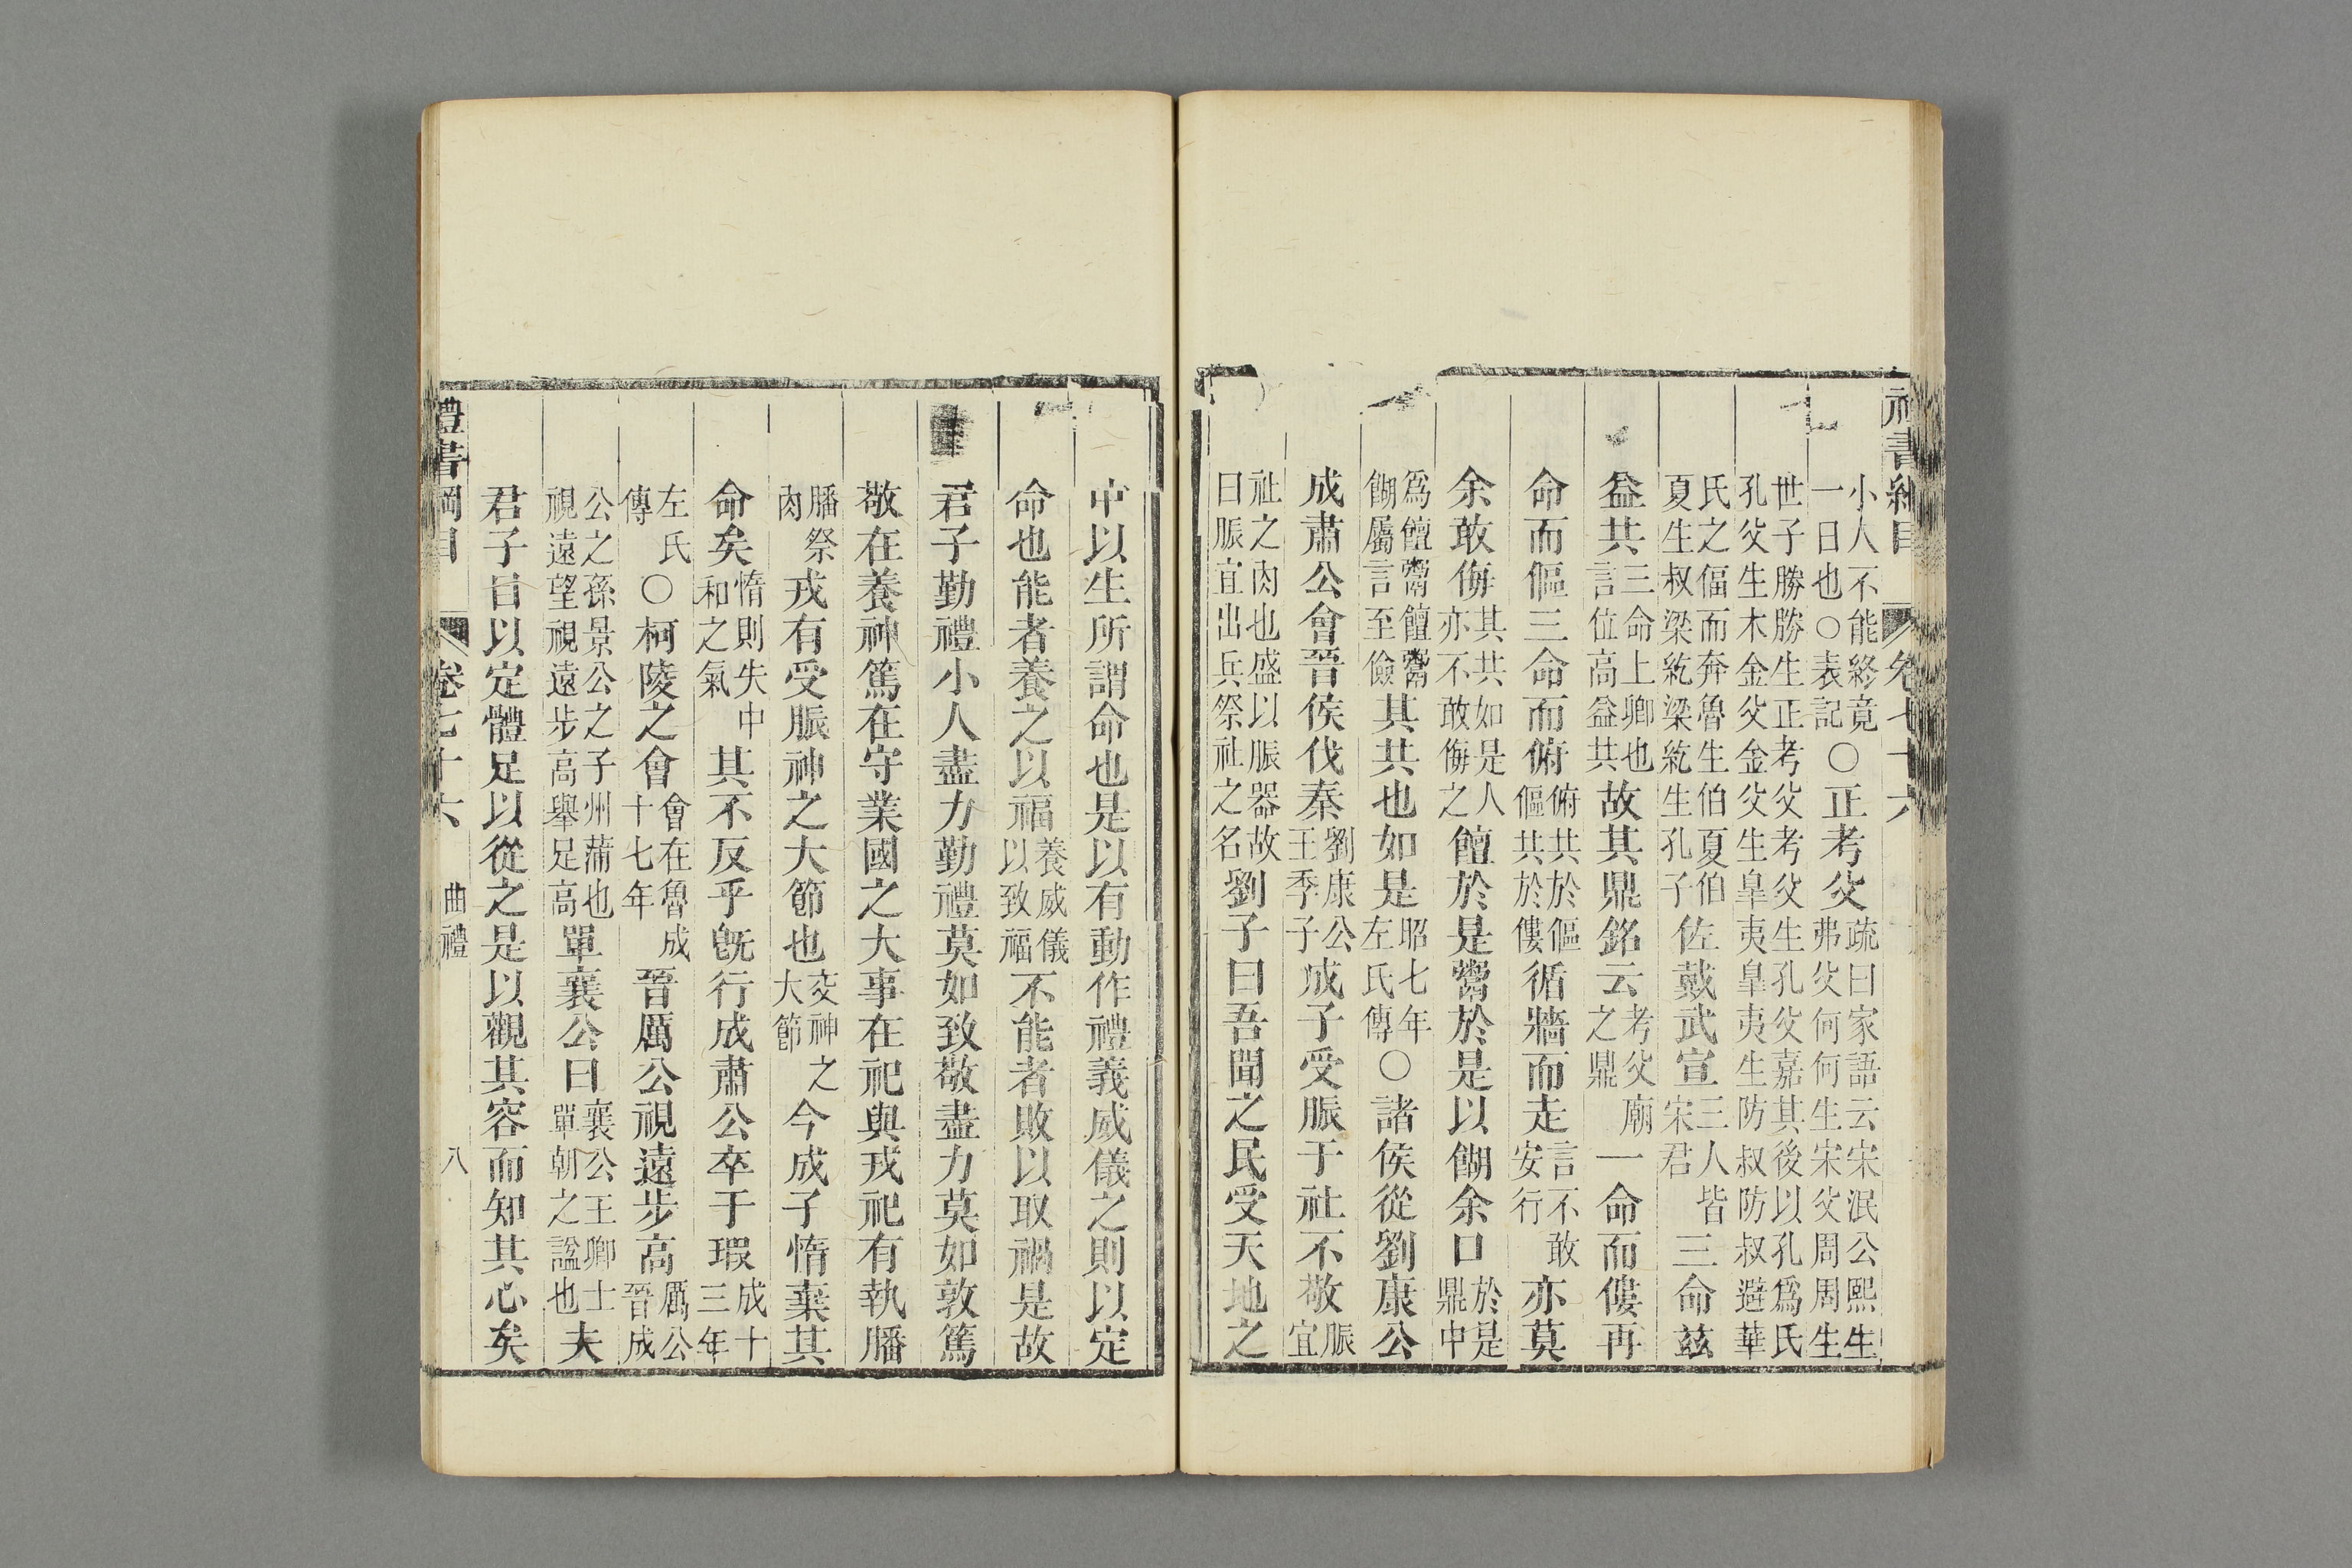 禮書綱目 卷七十六
小人不能終竟
一日也○表記○正考父疏曰家語云宋泯公熙生
弗父何何生宋父周周生
世子勝勝生正考父考父生孔父嘉其後以孔爲氏
孔父生木金父金父生皐夷皐夷生防叔防叔避華
氏之偪而奔魯生伯夏伯
夏生叔梁紇梁紇生孔子佐戴武宣三人皆
宋君三命兹
益共三命上卿也
言位高益共故其鼎銘云考父廟
之鼎一命而僂再
命而傴三命而俯俯共於傴
傴共於僂循牆而走言不敢
安行亦莫
余敢侮其共如是人
亦不敢侮之饘於是鬻於是以餬余口於是
鼎中
爲饘鬻饘鬻
餬屬言至儉其共也如是昭七年
左氏傳○諸侯從劉康公
成肅公會晉侯伐秦劉康公
王季子成子受脤于社不敬脤
宜
社之肉也盛以脤器故
曰脤宜出兵祭社之名劉子曰吾聞之民受天地之
中以生所謂命也是以有動作禮義威儀之則以定
命也能者養之以福養威儀
以致福不能者敗以取禍是故
君子勤禮小人盡力勤禮莫如致敬盡力莫如敦篤
敬在養神篤在守業國之大事在祀與戎祀有執膰
膰祭
肉戎有受脤神之大節也交神之
大節今成子惰棄其
命矣惰則失中
和之氣其不反乎旣行成肅公卒于瑕成十
三年
左氏
傳○柯陵之會會在魯成
十七年晉厲公視遠步高厲公
晉成
公之孫景公之子州蒲也
視遠望視遠步高舉足高單襄公曰襄公王卿士
單朝之謚也夫
君子目以定體足以從之是以觀其容而知其心矣
禮書綱目 卷七十六 曲禮 八